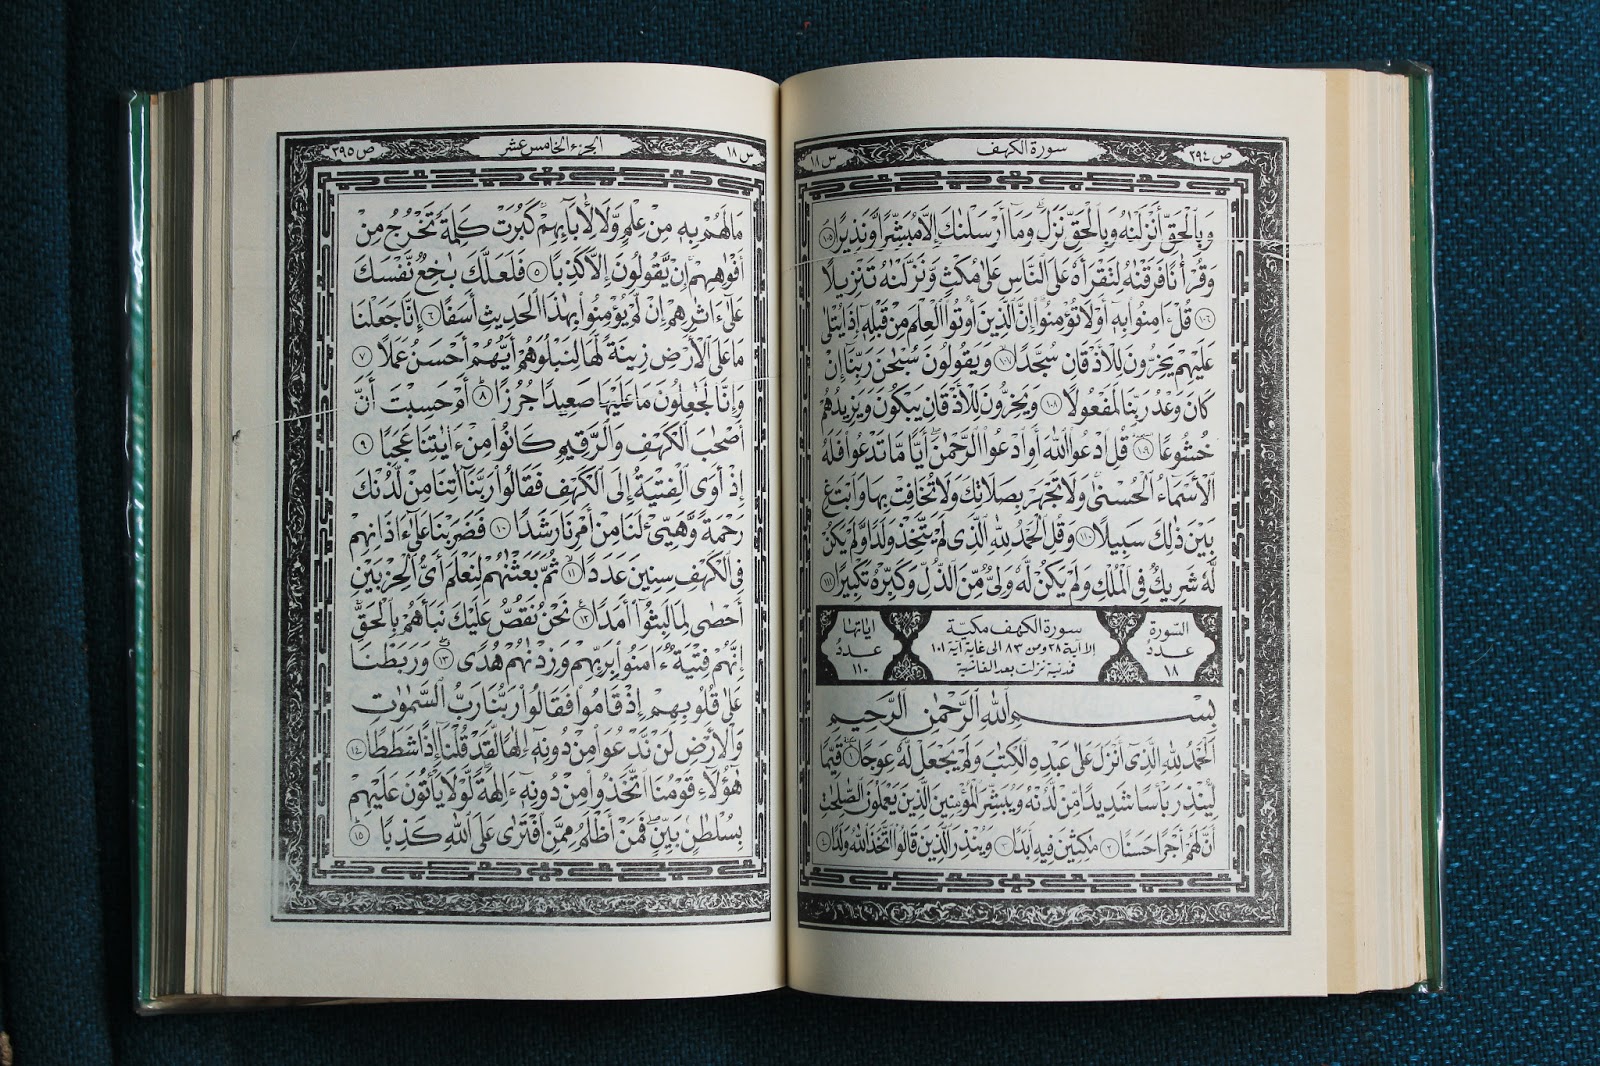 ص ٢٩٤
سورة الكهف
س ١٨
وَبِالْحَقِّ أَنْزَلْنٰهُ وَبِالْحَقِّ نَزَلَ ۗ وَمَآ أَرْسَلْنٰكَ إِلَّا مُبَشِّرًا وَّنَذِيرًا ١٠٥
وَقُرْءَانًا فَرَقْنٰهُ لِتَقْرَأَهُ عَلَى النَّاسِ عَلٰى مُكْثٍ وَّنَزَّلْنٰهُ تَنْزِيلًا
١٠٦ قُلْ ءَامِنُوا بِهِٓ أَوْ لَا تُؤْمِنُوا ۚ إِنَّ الَّذِينَ أُوتُوا الْعِلْمَ مِنْ قَبْلِهِٓ إِذَا يُتْلٰى
عَلَيْهِمْ يَخِرُّونَ لِلْأَذْقَانِ سُجَّدًا ١٠٧ وَيَقُولُونَ سُبْحٰنَ رَبِّنَآ إِنْ
كَانَ وَعْدُ رَبِّنَا لَمَفْعُولًا ١٠٨ وَيَخِرُّونَ لِلْأَذْقَانِ يَبْكُونَ وَيَزِيدُهُمْ
خُشُوعًا ١٠٩ قُلِ ادْعُوا اللّٰهَ أَوِ ادْعُوا الرَّحْمٰنَ ۖ أَيًّا مَّا تَدْعُوا فَلَهُ
الْأَسْمَآءُ الْحُسْنٰى ۚ وَلَا تَجْهَرْ بِصَلَاتِكَ وَلَا تُخَافِتْ بِهَا وَابْتَغِ
بَيْنَ ذٰلِكَ سَبِيلًا ١١٠ وَقُلِ الْحَمْدُ لِلّٰهِ الَّذِى لَمْ يَتَّخِذْ وَلَدًا وَّلَمْ يَكُنْ
لَّهُ شَرِيكٌ فِى الْمُلْكِ وَلَمْ يَكُنْ لَّهُ وَلِىٌّ مِّنَ الذُّلِّ ۖ وَكَبِّرْهُ تَكْبِيرًا ١١١
السّورة عددُ ١٨
سورة الكهف مكيّة
إلا آية ٢٨ ومن ٨٣ الى غاية آية ١٠١
فمدنية نزلت بعد الغاشية
اياتها عددُ ١١٠
بِسْمِ اللّٰهِ الرَّحْمٰنِ الرَّحِيمِ
الْحَمْدُ لِلّٰهِ الَّذِىٓ أَنْزَلَ عَلٰى عَبْدِهِ الْكِتٰبَ وَلَمْ يَجْعَلْ لَّهُ عِوَجًا ١ قَيِّمًا
لِّيُنْذِرَ بَأْسًا شَدِيدًا مِّنْ لَّدُنْهُ وَيُبَشِّرَ الْمُؤْمِنِينَ الَّذِينَ يَعْمَلُونَ الصّٰلِحٰتِ
أَنَّ لَهُمْ أَجْرًا حَسَنًا ٢ مّٰكِثِينَ فِيهِ أَبَدًا ٣ وَيُنْذِرَ الَّذِينَ قَالُوا اتَّخَذَ اللّٰهُ وَلَدًا ٤
س ١٨
الجزء الخامس عشر
ص ٢٩٥
مَا لَهُمْ بِهِ مِنْ عِلْمٍ وَّلَا لِأٰبَآئِهِمْ ۚ كَبُرَتْ كَلِمَةً تَخْرُجُ مِنْ
أَفْوٰهِهِمْ ۚ إِنْ يَّقُولُونَ إِلَّا كَذِبًا ٥ فَلَعَلَّكَ بٰخِعٌ نَّفْسَكَ
عَلٰىٓ ءَاثٰرِهِمْ إِنْ لَّمْ يُؤْمِنُوا بِهٰذَا الْحَدِيثِ أَسَفًا ٦ إِنَّا جَعَلْنَا
مَا عَلَى الْأَرْضِ زِينَةً لَّهَا لِنَبْلُوَهُمْ أَيُّهُمْ أَحْسَنُ عَمَلًا ٧
وَإِنَّا لَجٰعِلُونَ مَا عَلَيْهَا صَعِيدًا جُرُزًا ٨ أَمْ حَسِبْتَ أَنَّ
أَصْحٰبَ الْكَهْفِ وَالرَّقِيمِ كَانُوا مِنْ ءَايٰتِنَا عَجَبًا ٩
إِذْ أَوَى الْفِتْيَةُ إِلَى الْكَهْفِ فَقَالُوا رَبَّنَآ ءَاتِنَا مِنْ لَّدُنْكَ
رَحْمَةً وَّهَيِّئْ لَنَا مِنْ أَمْرِنَا رَشَدًا ١٠ فَضَرَبْنَا عَلٰىٓ ءَاذَانِهِمْ
فِى الْكَهْفِ سِنِينَ عَدَدًا ١١ ثُمَّ بَعَثْنٰهُمْ لِنَعْلَمَ أَىُّ الْحِزْبَيْنِ
أَحْصٰى لِمَا لَبِثُوٓا أَمَدًا ١٢ نَحْنُ نَقُصُّ عَلَيْكَ نَبَأَهُمْ بِالْحَقِّ ۚ
إِنَّهُمْ فِتْيَةٌ ءَامَنُوا بِرَبِّهِمْ وَزِدْنٰهُمْ هُدًى ١٣ وَّرَبَطْنَا
عَلٰى قُلُوبِهِمْ إِذْ قَامُوا فَقَالُوا رَبُّنَا رَبُّ السَّمٰوٰتِ
وَالْأَرْضِ لَنْ نَّدْعُوَا مِنْ دُونِهِٓ إِلٰهًا لَّقَدْ قُلْنَآ إِذًا شَطَطًا ١٤
هٰٓؤُلَآءِ قَوْمُنَا اتَّخَذُوا مِنْ دُونِهِٓ ءَالِهَةً ۖ لَّوْلَا يَأْتُونَ عَلَيْهِمْ
بِسُلْطٰنٍ بَيِّنٍ ۖ فَمَنْ أَظْلَمُ مِمَّنِ افْتَرٰى عَلَى اللّٰهِ كَذِبًا ١٥